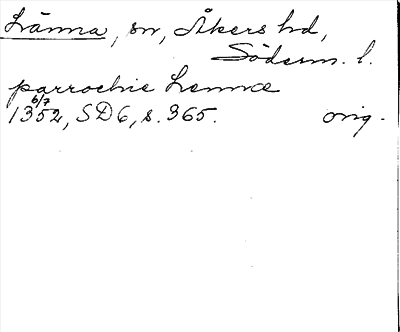 Länna, sn, Åkers hd,
Söderm. l.
parrochie Lennæ
6/7
1352, SD6, s. 365. orig.